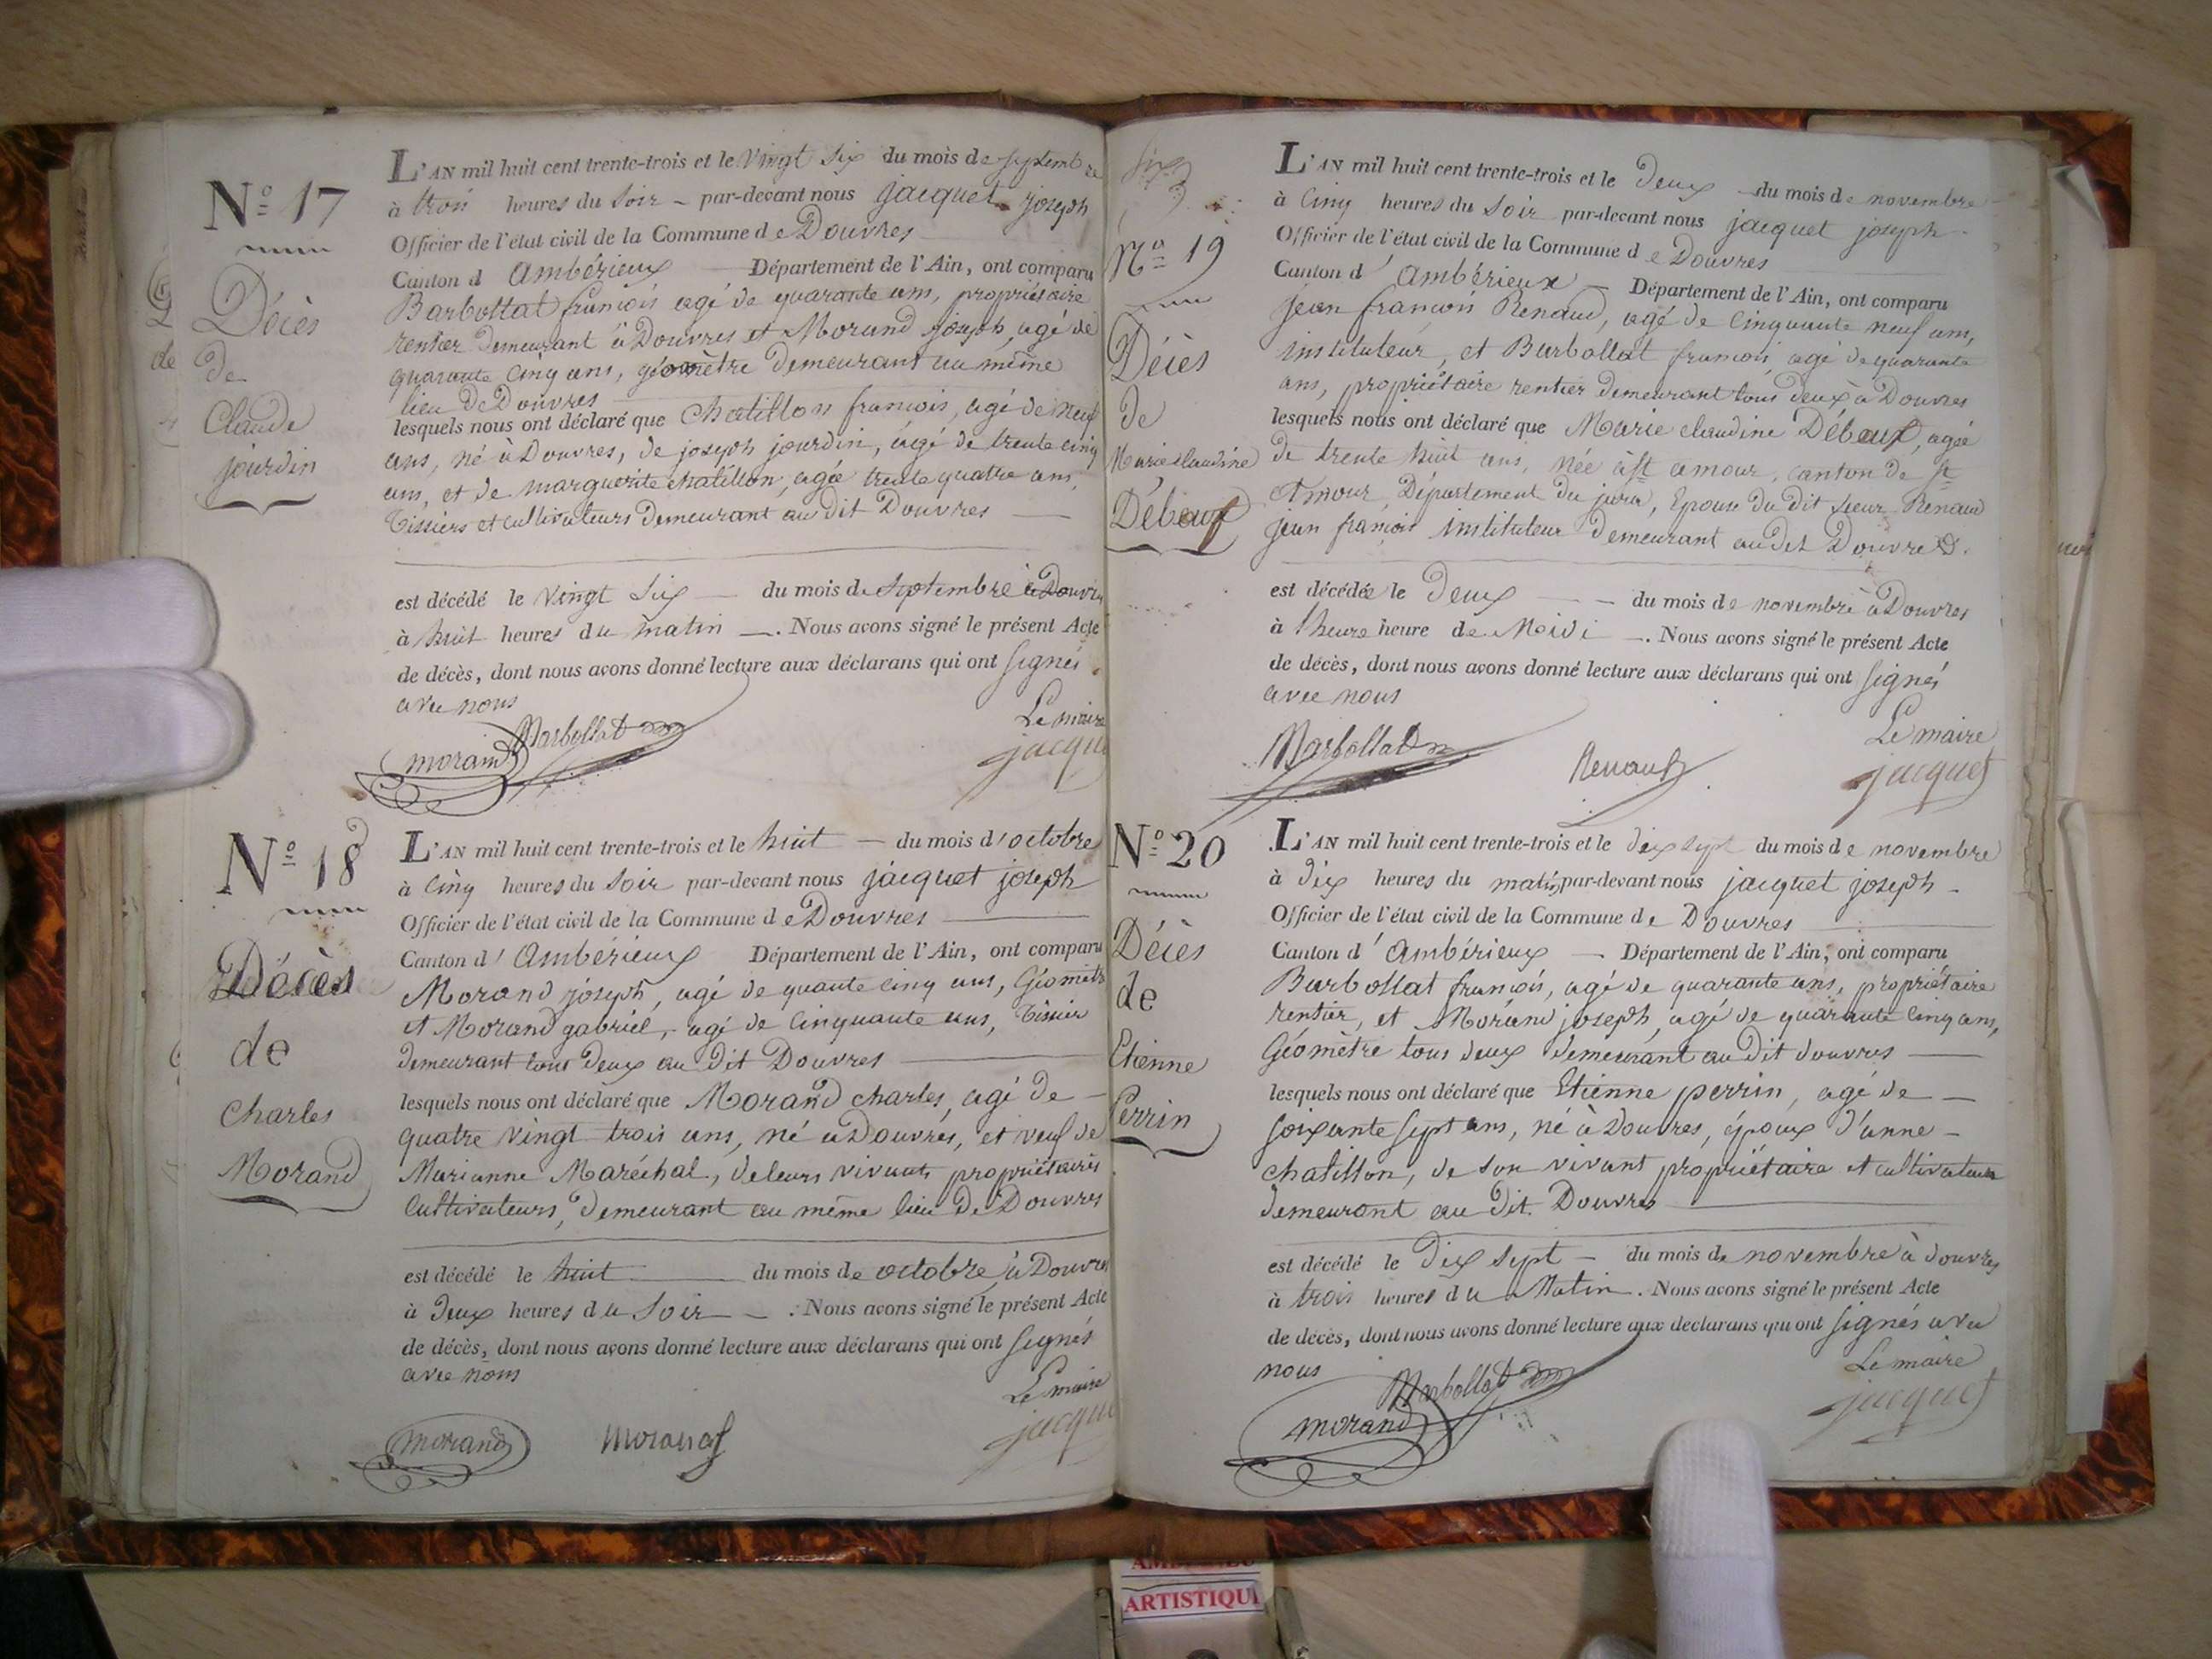 N° 17
Décès
de
Claude
jourdin
L'AN mil huit cent trente-trois et le vingt six du mois de septembre
à trois heures du soir – par-devant nous jacquet joseph
Officier de l'état civil de la Commune de Douvres
Canton d Ambérieux — Département de l'Ain, ont comparu
Barbollat françois agé de quarante ans, propriétaire
rentier demeurant à Douvres et Morand joseph, agé de
quarante cinq ans, géomètre demeurant au même
lieu De Douvres
lesquels nous ont déclaré que Chatillon françois, agé de neuf
ans, né à Douvres, de joseph jourdin, âgé de trente cinq
ans, et de marguerite chatillon, agée trente quatre ans,
Tissiers et cultivateurs Demeurant au dit Douvres —
est décédé le vingt six — du mois de septembre à Douvres
à huit heures du matin —. Nous avons signé le présent Acte
de décès, dont nous avons donné lecture aux déclarans qui ont signés
avec nous
Le maire
Barbollat
morand
jacquet
N° 18
Décès
de
Charles
Morand
L'AN mil huit cent trente-trois et le huit — du mois d'octobre
à cinq heures du soir par-devant nous jacquet joseph
Officier de l'état civil de la Commune de Douvres —
Canton d'Ambérieux Département de l'Ain, ont comparu
Morand joseph, agé de quante cinq ans, Géomètre
et Morand gabriel, agé de cinquante ans, Tissier
demeurant tous deux au dit Douvres —
lesquels nous ont déclaré que Morand charles, agé de –
quatre vingt trois ans, né à Douvres, et veuf de
Marianne Maréchal, de leurs vivants propriétaires
Cultivateurs, demeurant au même lieu De Douvres
est décédé le huit — du mois de octobre à Douvres
à deux heures du soir —. Nous avons signé le présent Acte
de décès, dont nous avons donné lecture aux déclarans qui ont signés
avec nous
Le maire
morand
morand
jacquet
N° 19
Décès
de
Marie claudine
Débauf
L'AN mil huit cent trente-trois et le Deux — du mois de novembre
à cinq heures du soir par-devant nous jacquet joseph
Officier de l'état civil de la Commune de Douvres
Canton d'Ambérieux — Département de l'Ain, ont comparu
jean françois Renaud, agé de cinquante neuf ans,
instituteur, et Barbollat françois agé de quarante
ans, propriétaire rentier demeurant tous deux à Douvres
lesquels nous ont déclaré que Marie claudine Débauf, agée
de trente huit ans, née à St amour, canton de St
Amour, Département du jura, Epouse du dit sieur Renaud
jean françois instituteur demeurant audit Douvres.
est décédée le Deux — – du mois de novembre à Douvres
à 1 heure heure de Midi —. Nous avons signé le présent Acte
de décès, dont nous avons donné lecture aux déclarans qui ont signés
avec nous
Le maire
Barbollat
Renaud
jacquet
N° 20
Décès
de
Etienne
Perrin
L'AN mil huit cent trente-trois et le dix sept du mois de novembre
à dix heures du matin par-devant nous jacquet joseph –
Officier de l'état civil de la Commune de Douvres —
Canton d'Ambérieux — Département de l'Ain, ont comparu
Barbollat françois, agé de quarante ans, propriétaire
rentier, et Morand joseph, agé de quarante cinq ans,
Géomètre tous deux demeurant au dit douvres —
lesquels nous ont déclaré que Etienne perrin, agé de —
soixante sept ans, né à Douvres, époux d'anne –
chatillon, de son vivant propriétaire et cultivateur
demeurant au dit Douvres —
est décédé le dix sept – du mois de novembre à douvres
à trois heures du Matin. Nous avons signé le présent Acte
de décès, dont nous avons donné lecture aux déclarans qui ont signés avec
nous
Le maire
Barbollat
morand
jacquet
ARTISTIQU